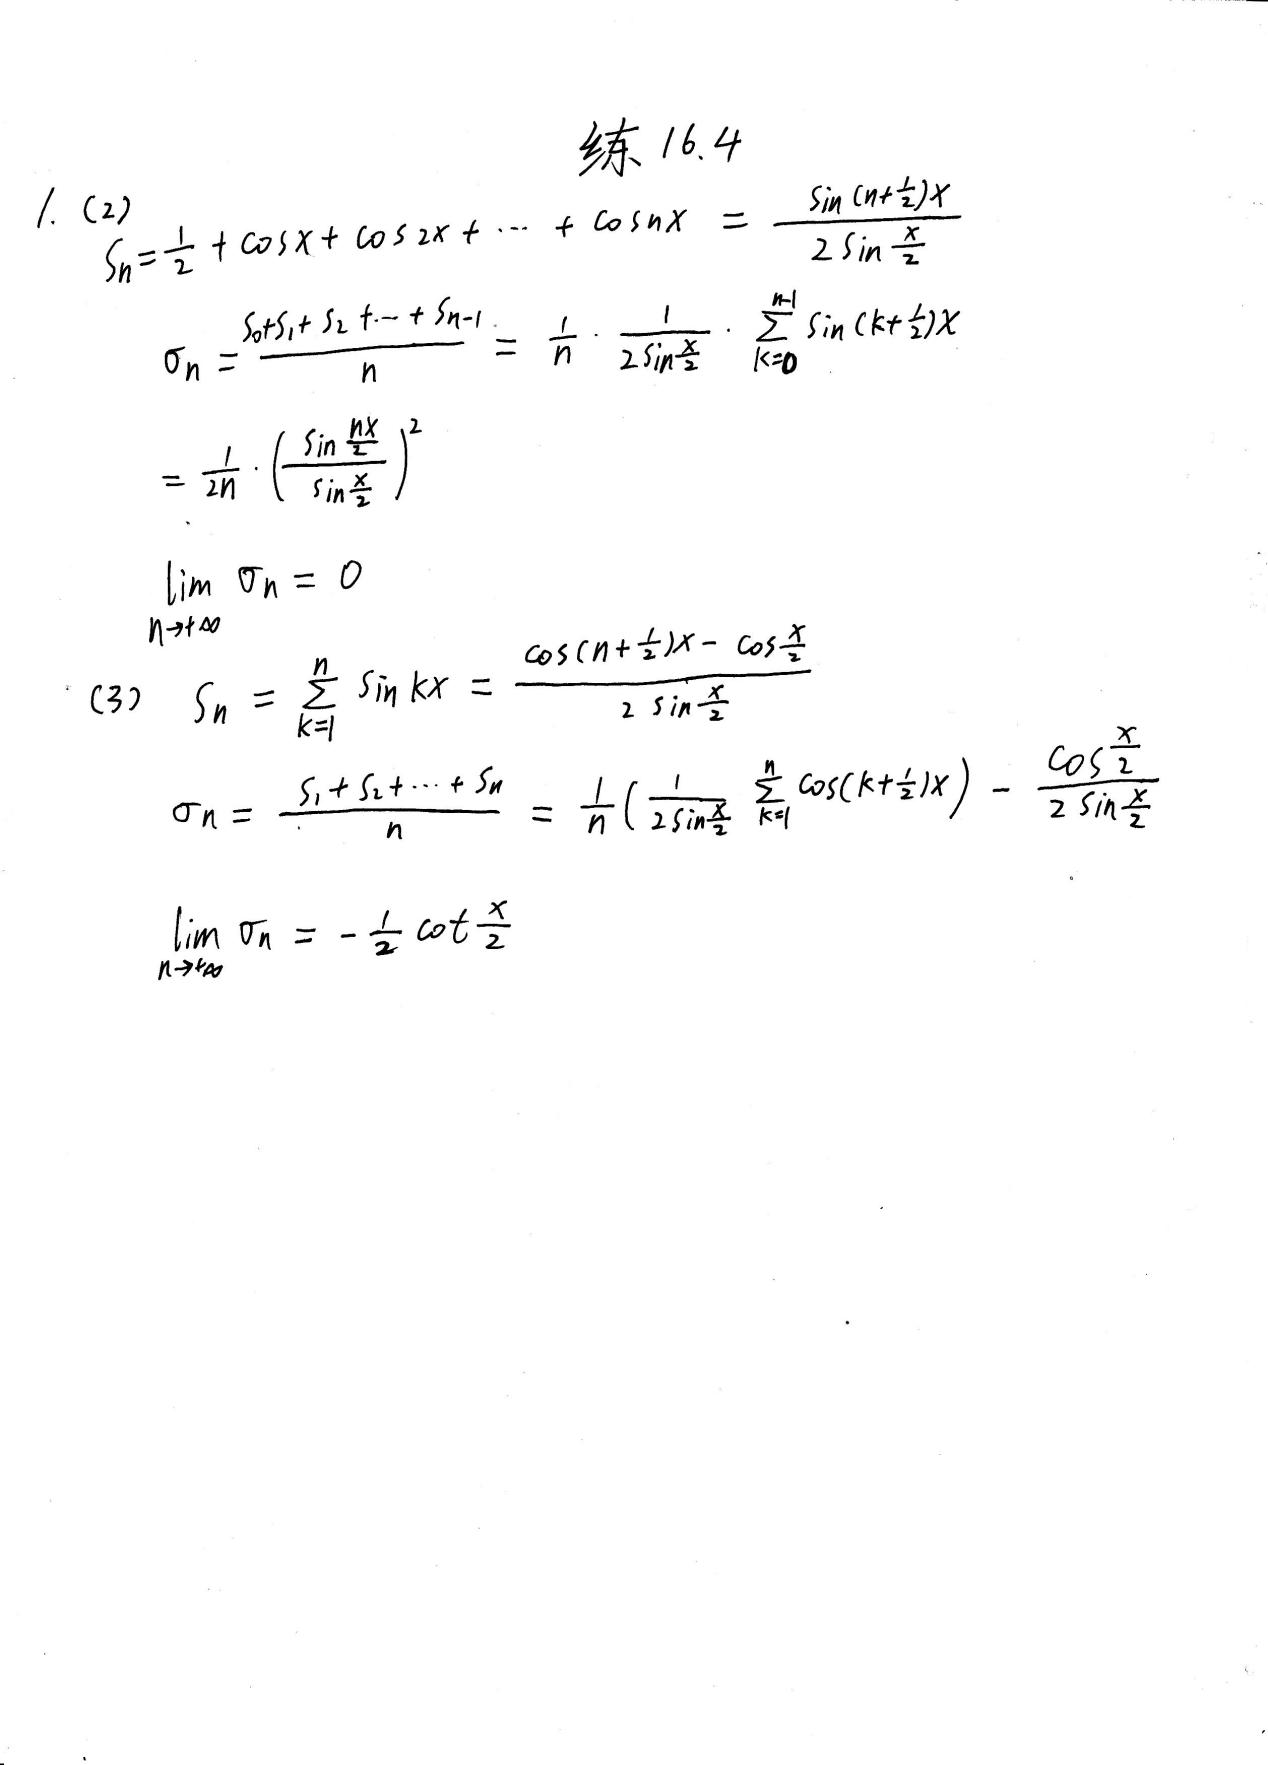 练 16.4
1. (2)
Sn = 1/2 + cosx + cos2x + ... + cosnx = sin(n+1/2)x / 2sin x/2
σn = (S0+S1+S2+...+Sn-1)/n = 1/n · 1/(2sin x/2) · Σ_{k=0}^{n-1} sin(k+1/2)x
= 1/2n · (sin nx/2 / sin x/2)^2
lim_{n→+∞} σn = 0
(3) Sn = Σ_{k=1}^{n} sin kx = (cos(n+1/2)x - cos x/2) / (2sin x/2)
σn = (S1+S2+...+Sn)/n = 1/n (1/(2sin x/2) Σ_{k=1}^{n} cos(k+1/2)x) - (cos x/2)/(2sin x/2)
lim_{n→+∞} σn = -1/2 cot x/2